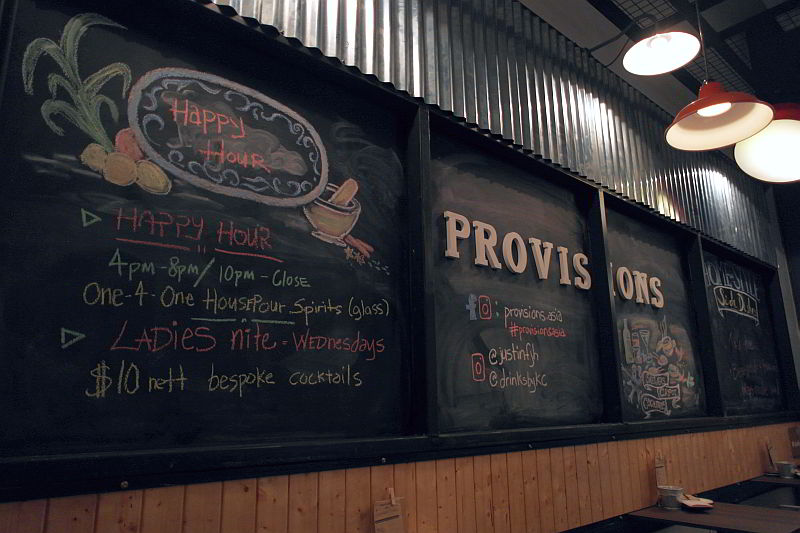 Happy
Hour
HAPPY HOUR
4pm-8pm/10pm-CLOSE
ONE-4-ONE HOUSEPOUR SPIRITS (glass)
LADIES nite = WEDnesdays
$10 nett bespoke cocktails
PROVISIONS
: provisions.asia
#provisionsasia
@justinfyh
@drinksbykc